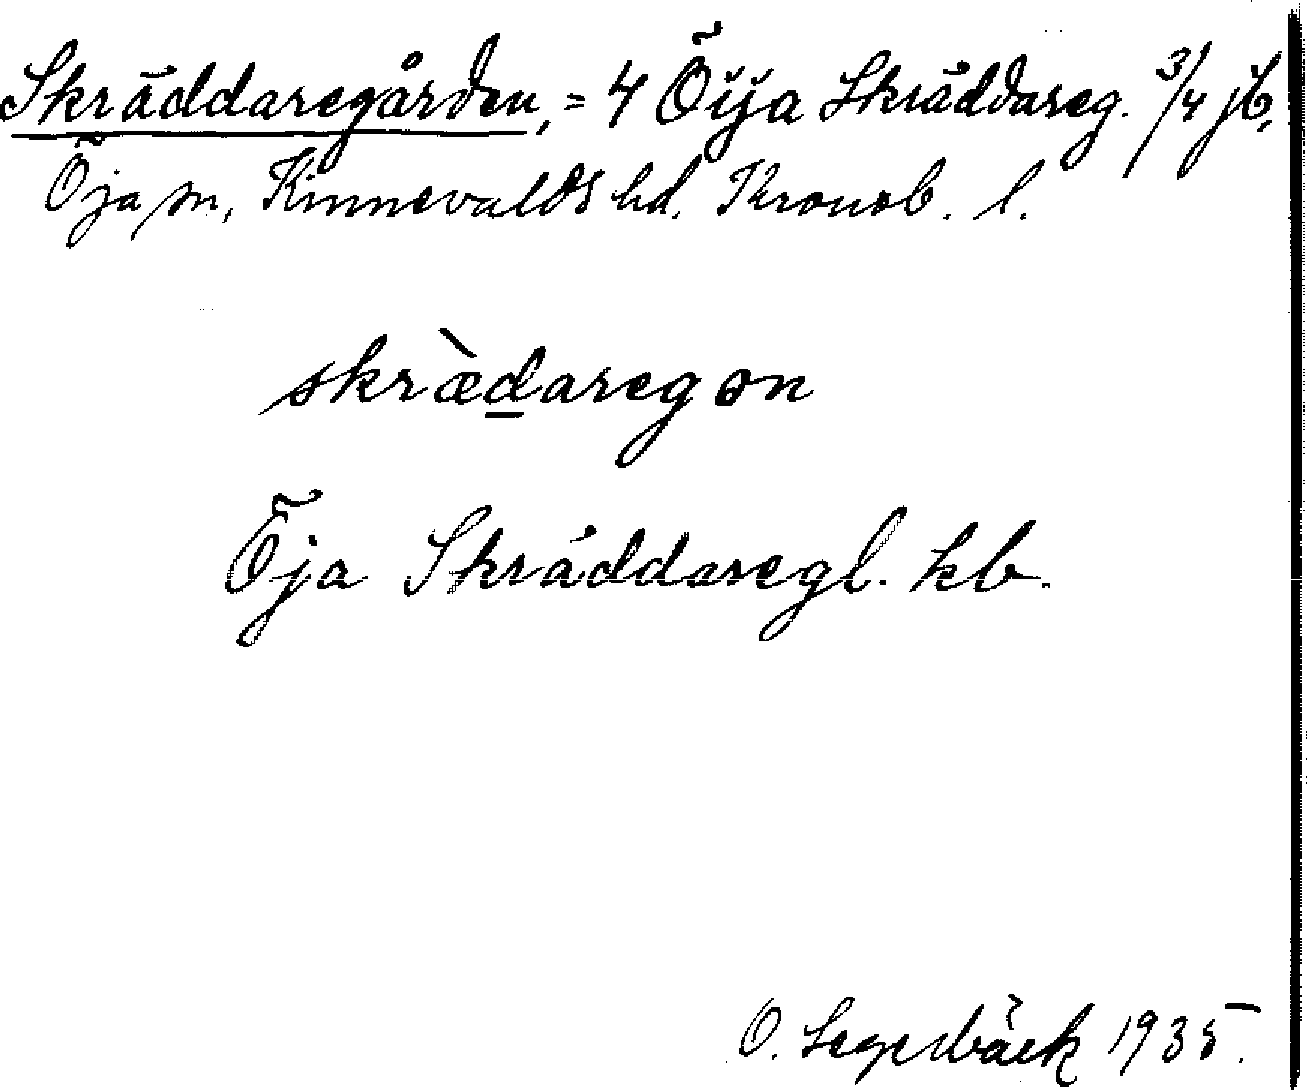 Skräddaregården, = 4 Öija Skräddareg. 3/4 jb,
Öja sn, Kinnevalds hd. Kronob. l.
skræ̀d̲aregøn
Öja Skräddaregl. kb.
O. Segerbäck 1935.